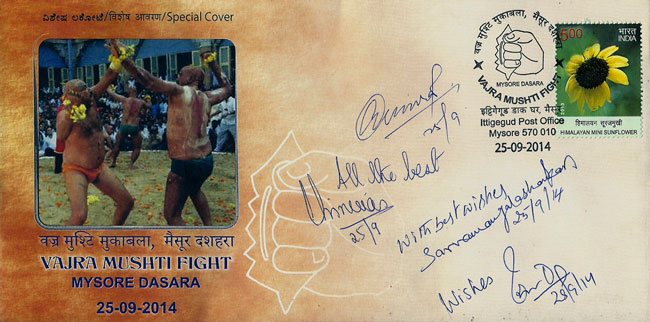 ವಿಶೇಷ ಲಕೋಟೆ/विशेष आवरण/Special Cover
वज्र मुश्टि मुकाबला, मैसूर दशहरा
VAJRA MUSHTI FIGHT
MYSORE DASARA
25-09-2014
वज्र मुश्टि मुकाबला, मैसूर दशहरा
MYSORE DASARA
VAJRA MUSHTI FIGHT
इट्टिगेगूड डाक घर, मैसूर
Ittigegud Post Office
Mysore 570 010
25-09-2014
5.00
भारत
INDIA
हिमालयन सूरजमुखी
HIMALAYAN MINI SUNFLOWER
25/9
All the best
25/9
With best wishes
25/9/14
Wishes
25/9/14